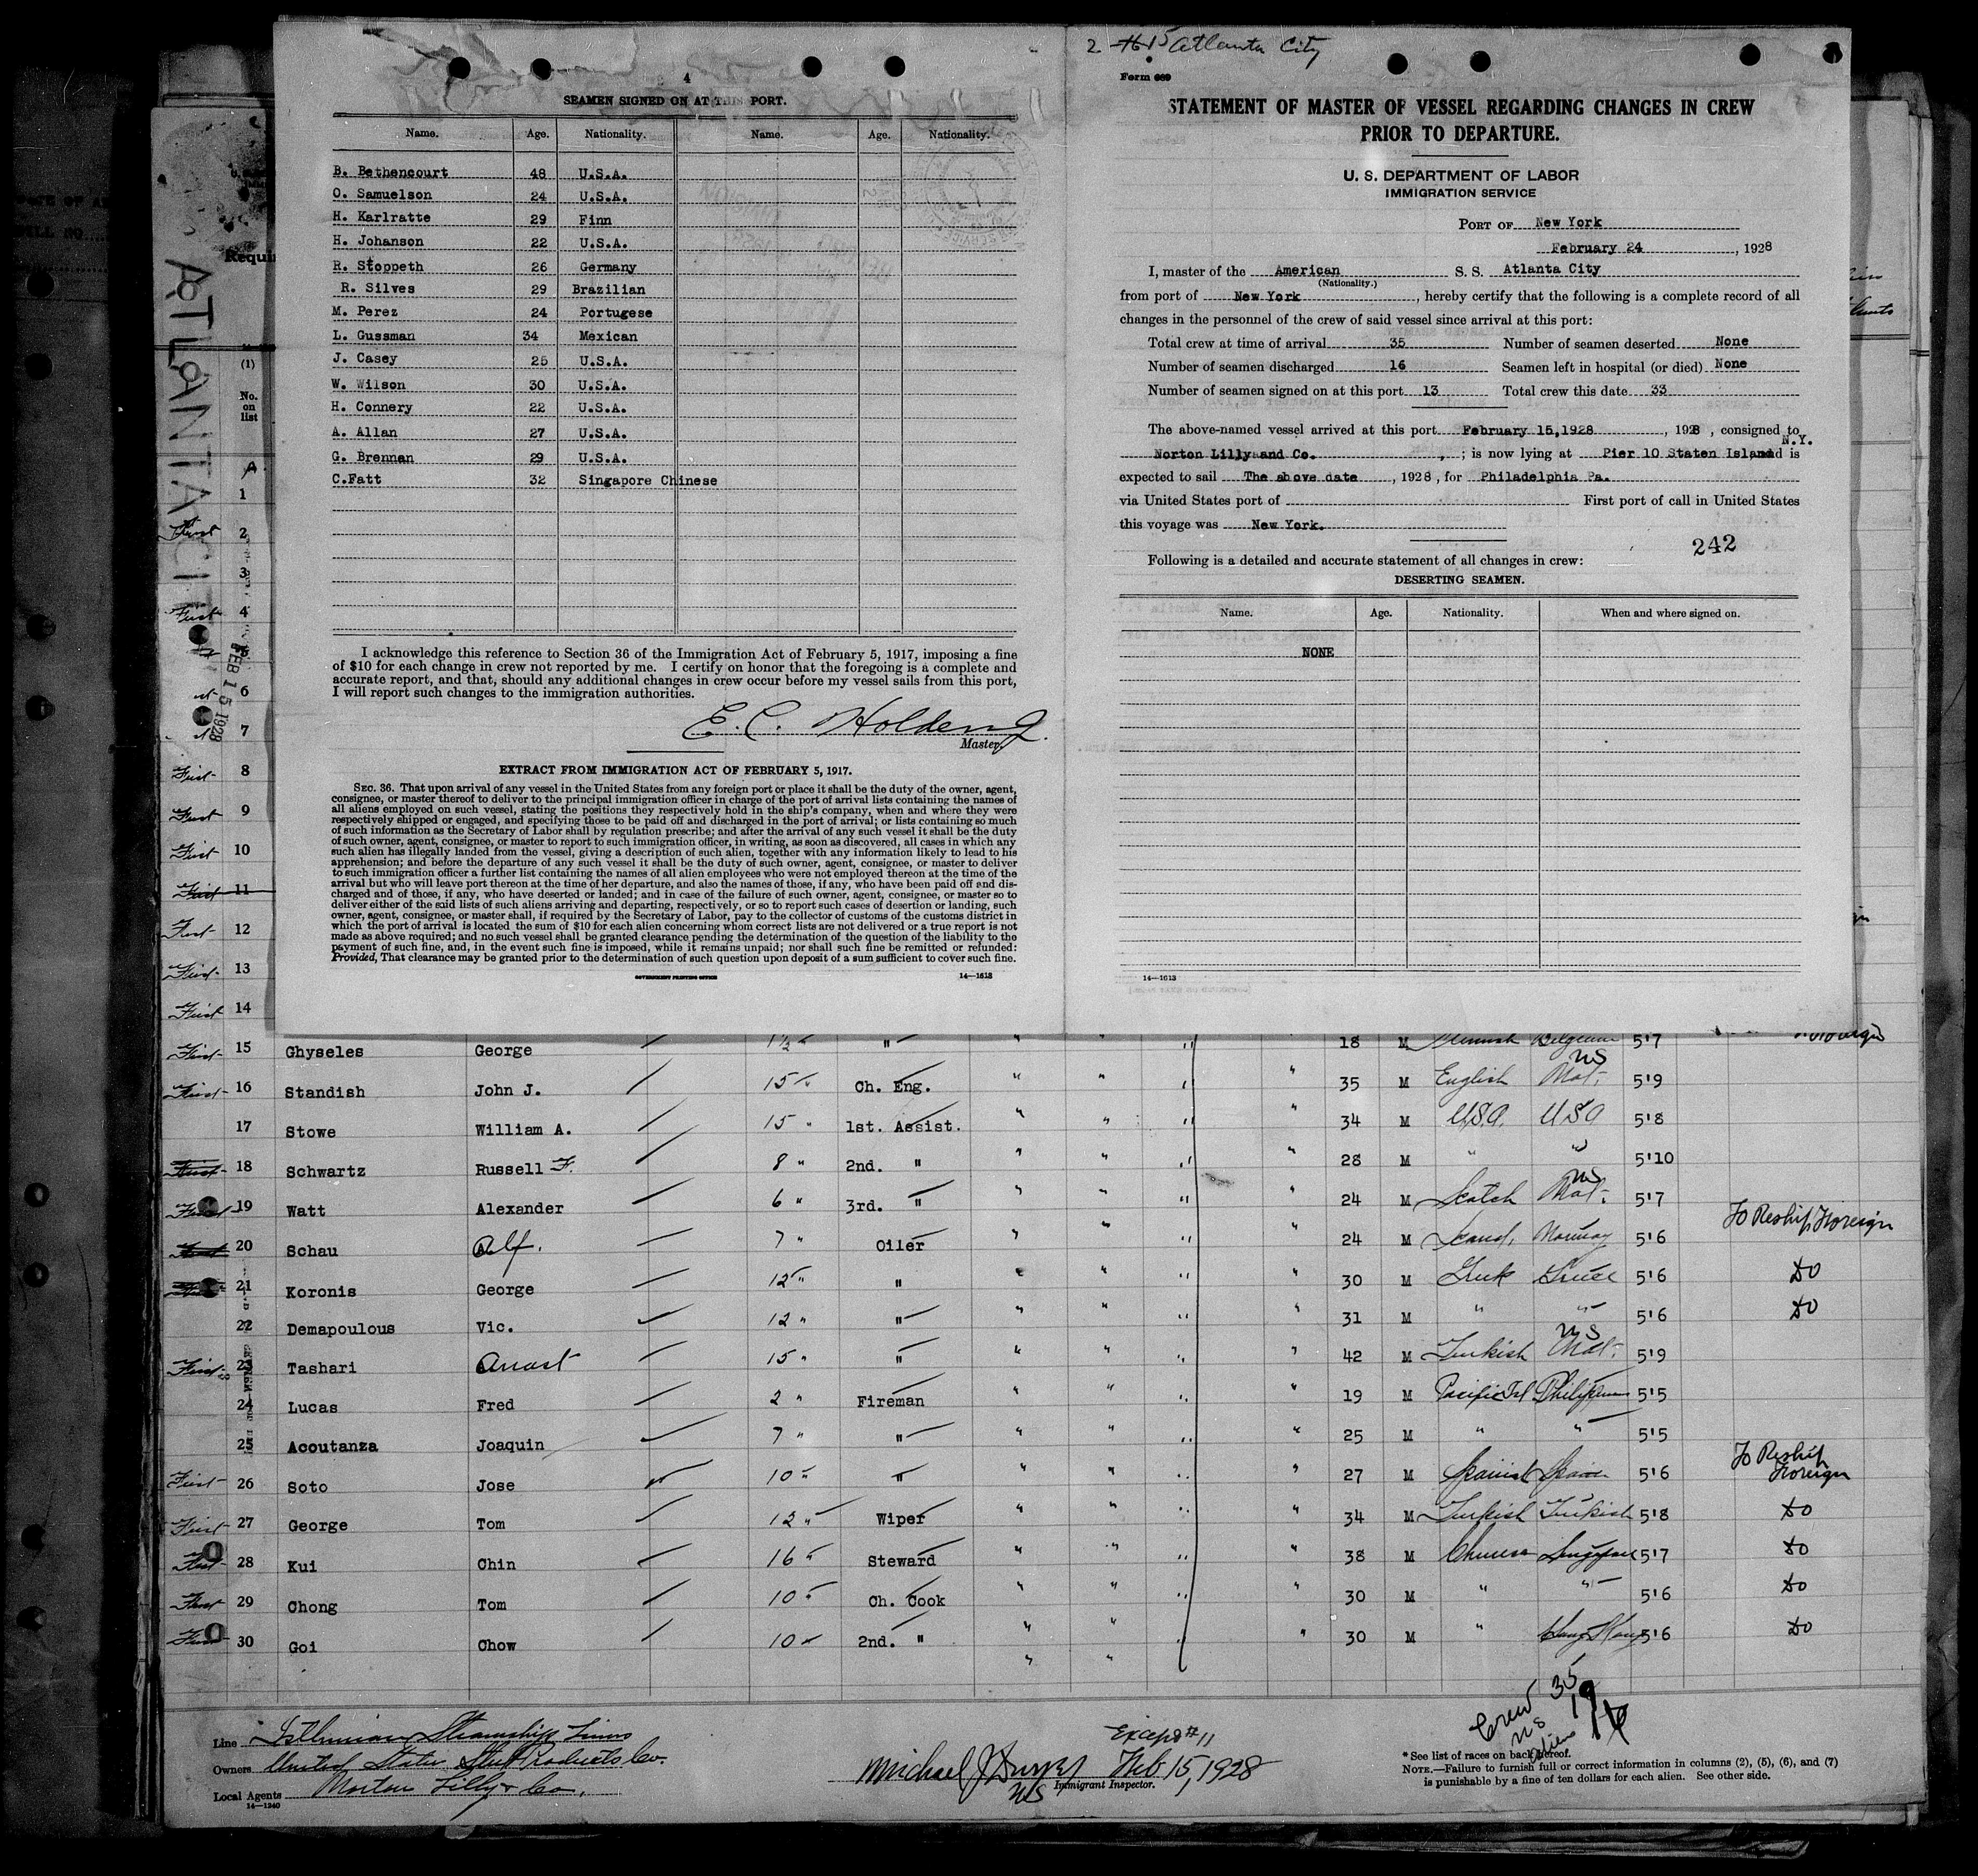 4
SEAMEN SIGNED ON AT THIS PORT.
Name. Age. Nationality. Name. Age. Nationality.
B. Bethencourt 48 U.S.A.
O. Samuelson 24 U.S.A.
H. Karlratte 29 Finn
H. Johanson 22 U.S.A.
R. Stoppeth 26 Germany
R. Silves 29 Brazilian
M. Perez 24 Portugese
L. Gussman 34 Mexican
J. Casey 25 U.S.A.
W. Wilson 30 U.S.A.
H. Connery 22 U.S.A.
A. Allan 27 U.S.A.
G. Brennan 29 U.S.A.
C.Fatt 32 Singapore Chinese
I acknowledge this reference to Section 36 of the Immigration Act of February 5, 1917, imposing a fine
of $10 for each change in crew not reported by me. I certify on honor that the foregoing is a complete and
accurate report, and that, should any additional changes in crew occur before my vessel sails from this port,
I will report such changes to the immigration authorities.
E. C. Holden
Master.
EXTRACT FROM IMMIGRATION ACT OF FEBRUARY 5, 1917.
SEC. 36. That upon arrival of any vessel in the United States from any foreign port or place it shall be the duty of the owner, agent,
consignee, or master thereof to deliver to the principal immigration officer in charge of the port of arrival lists containing the names of
all aliens employed on such vessel, stating the positions they respectively hold in the ship's company, when and where they were
respectively shipped or engaged, and specifying those to be paid off and discharged in the port of arrival; or lists containing so much
of such information as the Secretary of Labor shall by regulation prescribe; and after the arrival of any such vessel it shall be the duty
of such owner, agent, consignee, or master to report to such immigration officer, in writing, as soon as discovered, all cases in which any
such alien has illegally landed from the vessel, giving a description of such alien, together with any information likely to lead to his
apprehension; and before the departure of any such vessel it shall be the duty of such owner, agent, consignee, or master to deliver
to such immigration officer a further list containing the names of all alien employees who were not employed thereon at the time of the
arrival but who will leave port thereon at the time of her departure, and also the names of those, if any, who have been paid off and dis-
charged and of those, if any, who have deserted or landed; and in case of the failure of such owner, agent, consignee, or master so to
deliver either of the said lists of such aliens arriving and departing, respectively, or so to report such cases of desertion or landing, such
owner, agent, consignee, or master shall, if required by the Secretary of Labor, pay to the collector of customs of the customs district in
which the port of arrival is located the sum of $10 for each alien concerning whom correct lists are not delivered or a true report is not
made as above required; and no such vessel shall be granted clearance pending the determination of the question of the liability to the
payment of such fine, and, in the event such fine is imposed, while it remains unpaid; nor shall such fine be remitted or refunded:
Provided, That clearance may be granted prior to the determination of such question upon deposit of a sum sufficient to cover such fine.
GOVERNMENT PRINTING OFFICE 14—1613
2 H15 Atlanta City
Form 689
STATEMENT OF MASTER OF VESSEL REGARDING CHANGES IN CREW
PRIOR TO DEPARTURE.
U. S. DEPARTMENT OF LABOR
IMMIGRATION SERVICE
PORT OF New York
February 24, 1928
I, master of the American S. S. Atlanta City
(Nationality.)
from port of New York, hereby certify that the following is a complete record of all
changes in the personnel of the crew of said vessel since arrival at this port:
Total crew at time of arrival 35 Number of seamen deserted None
Number of seamen discharged 16 Seamen left in hospital (or died) None
Number of seamen signed on at this port 13 Total crew this date 33
The above-named vessel arrived at this port February 15,1928, 1928, consigned to
N.Y.
Norton Lilly and Co., ; is now lying at Pier 10 Staten Island and is
expected to sail The above date, 1928, for Philadelphia Pa.
via United States port of First port of call in United States
this voyage was New York.
242
Following is a detailed and accurate statement of all changes in crew:
DESERTING SEAMEN.
Name. Age. Nationality. When and where signed on.
NONE
14—1613
ATLANTA CIT
Requi
FEB 15 1928
(1)
No.
on
list
1
First 2
3
First 4
6
7
First 8
First 9
First 10
First 11
First 12
First 13
First 14
First 15 Ghyseles George 1½ " " " " 18 M Flemish Belgium 5'7
First 16 Standish John J. 15 " Ch. Eng. " " " " 35 M English US Nat. 5'9
17 Stowe William A. 15 " 1st. Assist. " " " " 34 M U.S.A. USA 5'8
First 18 Schwartz Russell F. 8 " 2nd. " " " " " 28 M " " 5'10
First 19 Watt Alexander 6 " 3rd. " " " " " 24 M Scotch US Nat. 5'7
First 20 Schau Alf. 7 " Oiler " " " " 24 M Scand. Norway 5'6 To Reship Foreign
First 21 Koronis George 12 " " " " " " 30 M Greek Greece 5'6 Do
22 Demapoulous Vic. 12 " " " " " " 31 M " " 5'6 Do
First 23 Tashari Anast 15 " " " " " " 42 M Turkish US Nat. 5'9
24 Lucas Fred 2 " Fireman " " " " 19 M Pacific Isl Philippines 5'5
25 Acoutanza Joaquin 7 " " " " " " 25 M " " 5'5
First 26 Soto Jose 10 " " " " " " 27 M Spanish Spain 5'6 To Reship Foreign
First 27 George Tom 12 " Wiper " " " " 34 M Turkish Turkish 5'8 Do
First 28 Kui Chin 16 " Steward " " " " 38 M Chinese Singapore 5'7 Do
First 29 Chong Tom 10 " Ch. Cook " " " " 30 M " " 5'6 Do
First 30 Goi Chow 10 " 2nd. " " " " " 30 M " Hong Kong 5'6 Do
Crew 35
US 19
Alien 16
Line Isthmian Steamship Lines
Owners United States Steel Products Co.
Local Agents Norton Lilly & Co.
14—1240
Except #11
Michael J Feb 15, 1928
US Immigrant Inspector.
* See list of races on back hereof.
NOTE.—Failure to furnish full or correct information in columns (2), (5), (6), and (7)
is punishable by a fine of ten dollars for each alien. See other side.